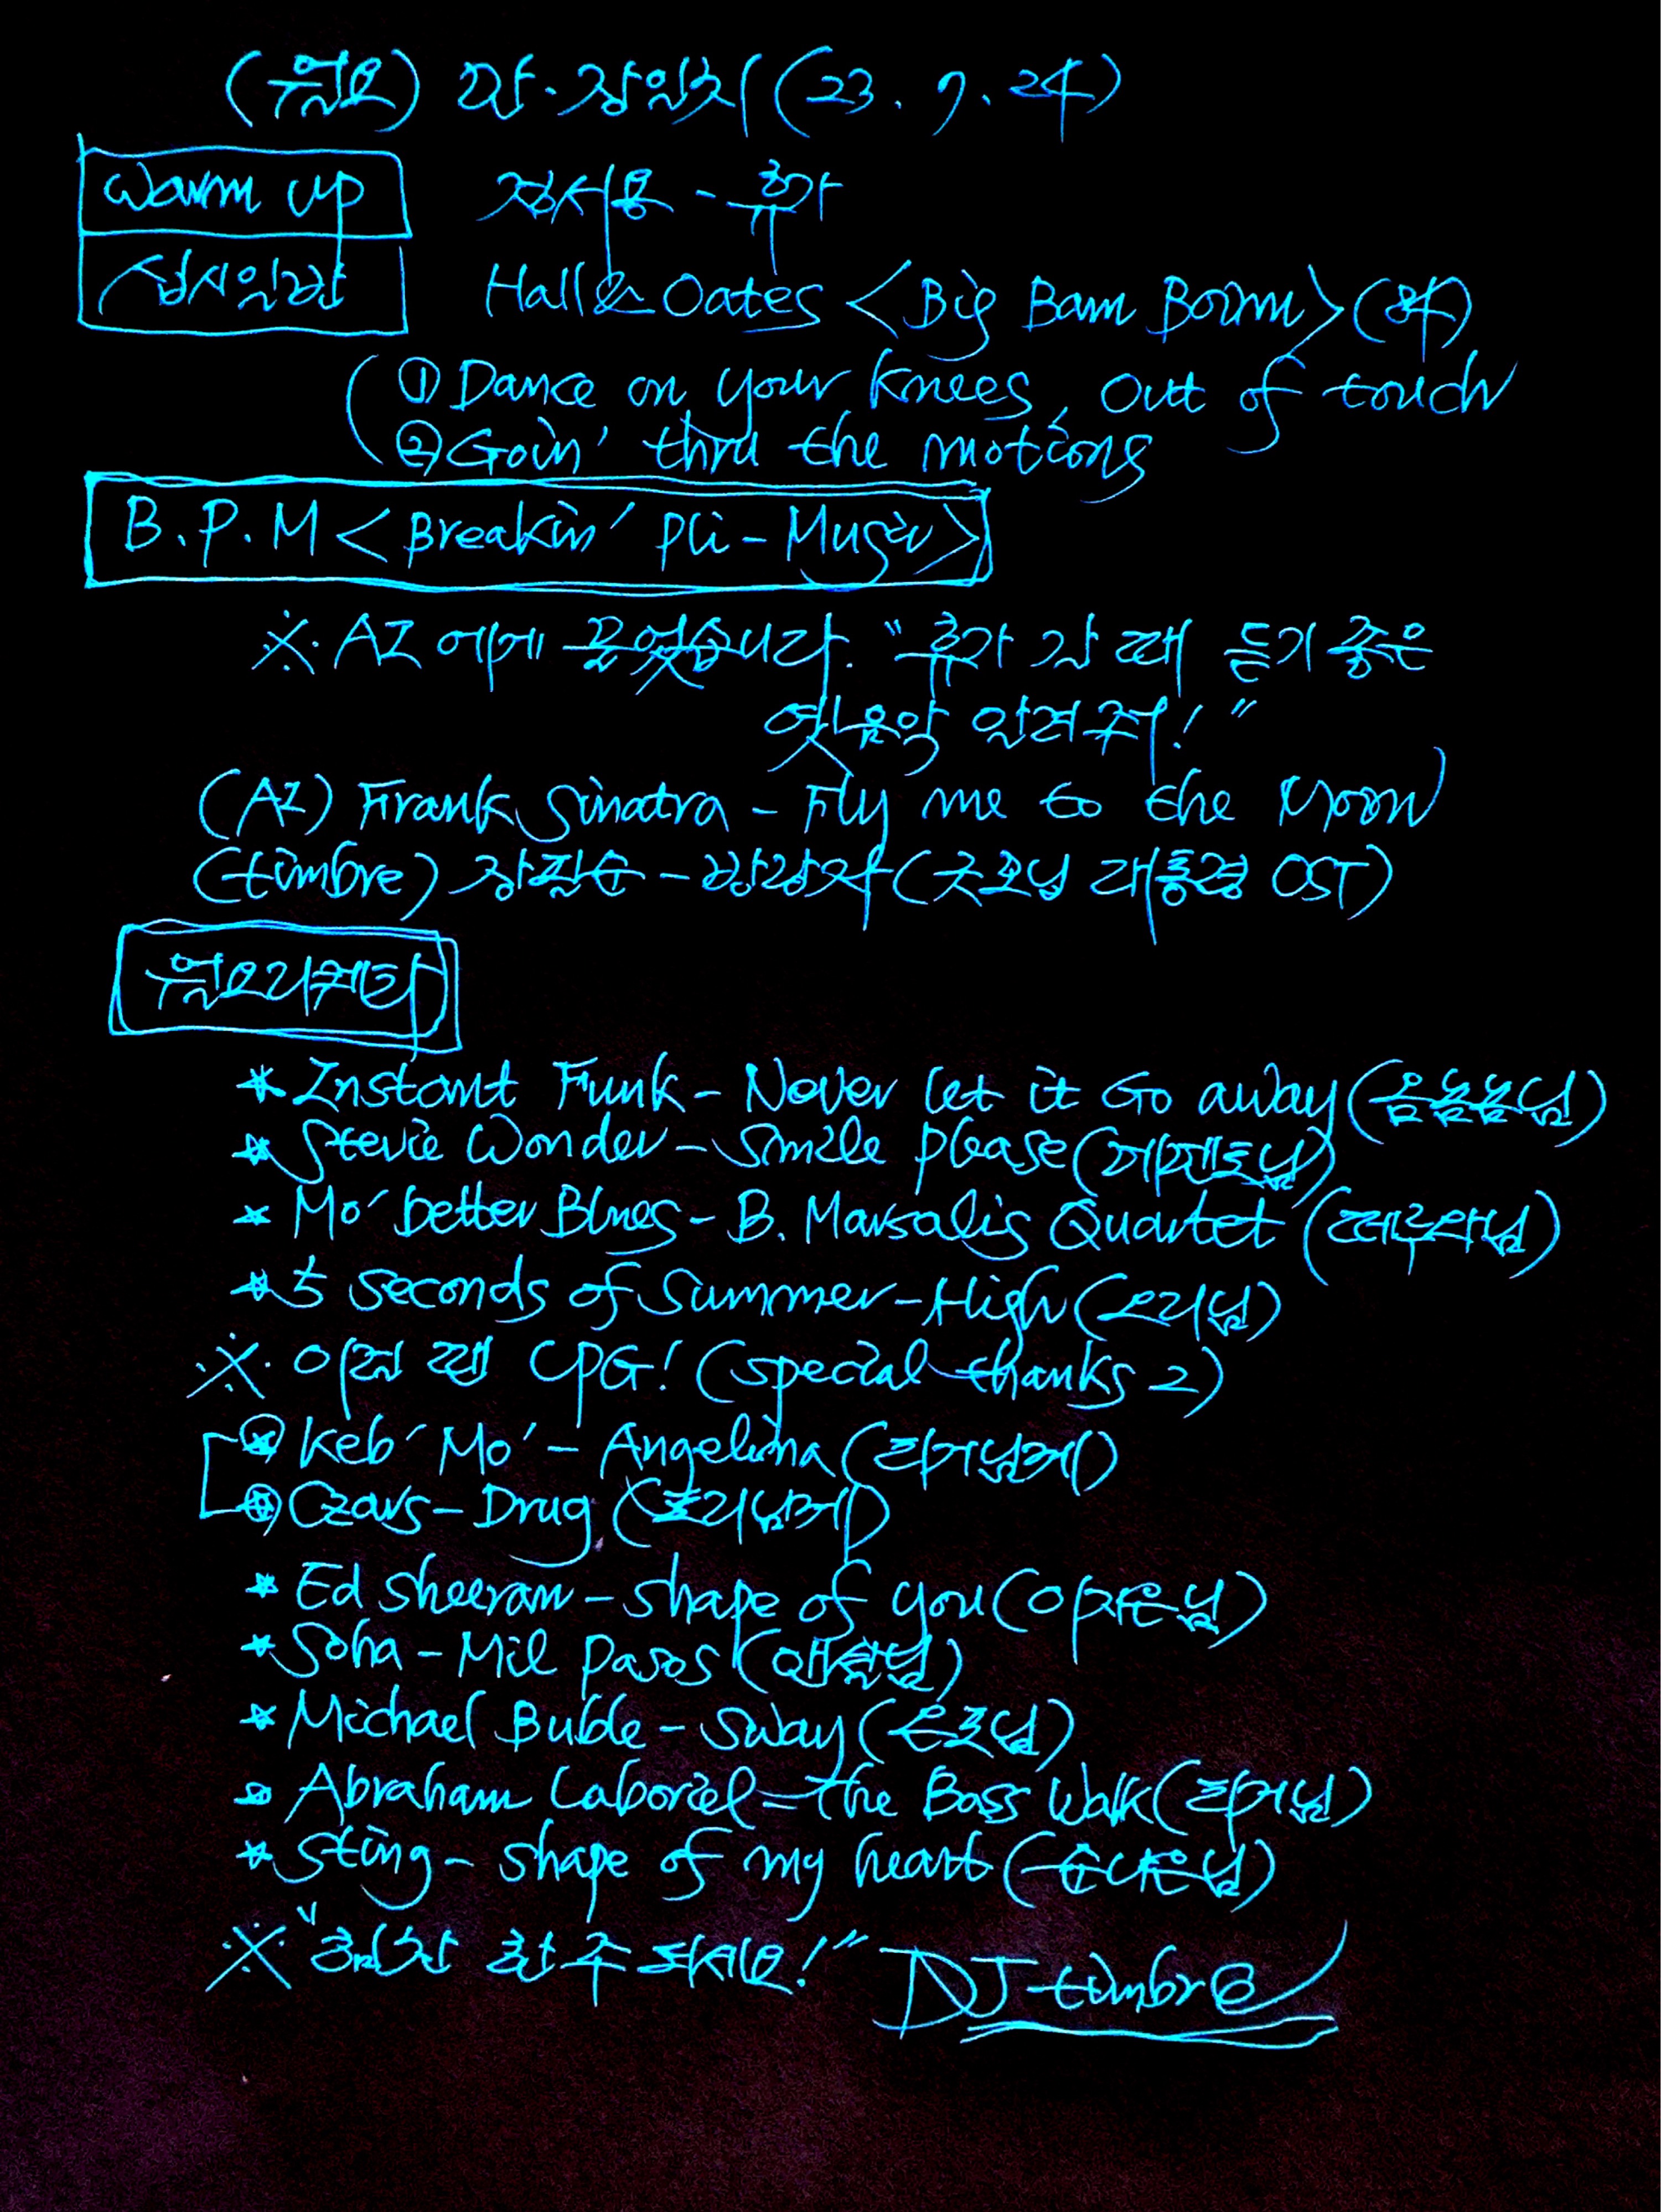 (월요) 깐·징인치 (23. 7. 24)
warm up 정시용 - 휴가
십시일반 Hall & Oates <Big Bam Boom> (84)
① Dance on your knees, Out of touch
② Goin' thru the motions
B.P.M <Breakin' Pli-Music>
※. AI 에게 물었습니다. "휴가 갈 때 듣기 좋은
옛음악 알려줘!"
(AI) Frank Sinatra - Fly me to the Moon
(timbre) 장필순 - 방랑자 (굿모닝 대통령 OST)
월요리퀘타
* Instant Funk - Never let it Go away (음음음님)
* Stevie Wonder - Smile please
* Mo' better Blues - B. Marsalis Quartet
* 5 Seconds of Summer - High (오리님)
※. 이건 쨉 CPG! (special thanks 2)
* Keb' Mo' - Angelina
* Czars - Drug
* Ed Sheeran - shape of you
* Soha - Mil pasos
* Michael Buble - Sway
* Abraham Laboriel - the Bass Walk
* Sting - shape of my heart
※ "힘찬 한 주 되세요!" DJ timbre